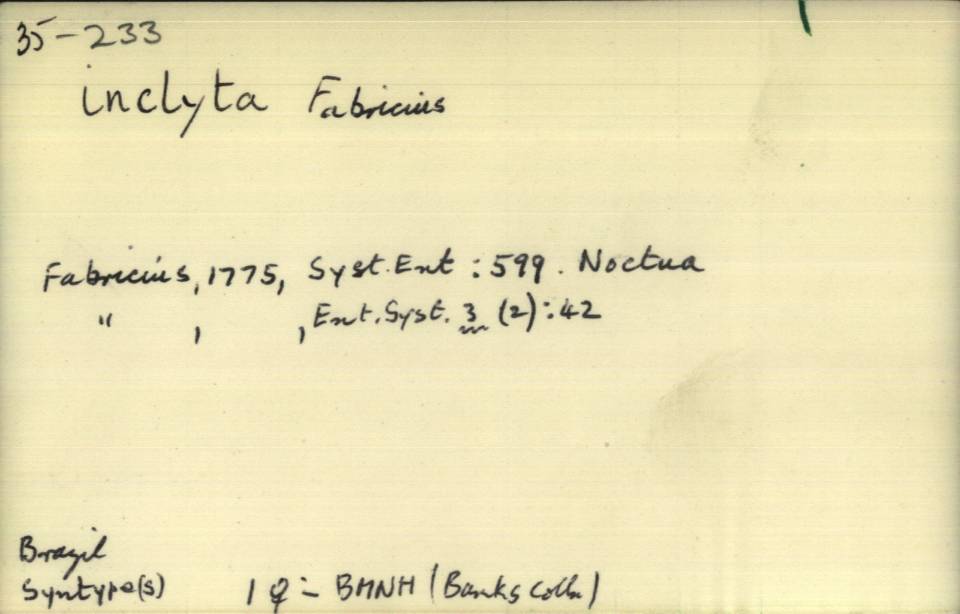 35-233
inclyta Fabricius
Fabricius, 1775, Syst. Ent : 599. Noctua
" , , Ent. Syst. 3 (2) : 42
Brazil
Syntype(s) 1 ♀ - BMNH (Banks Colln)